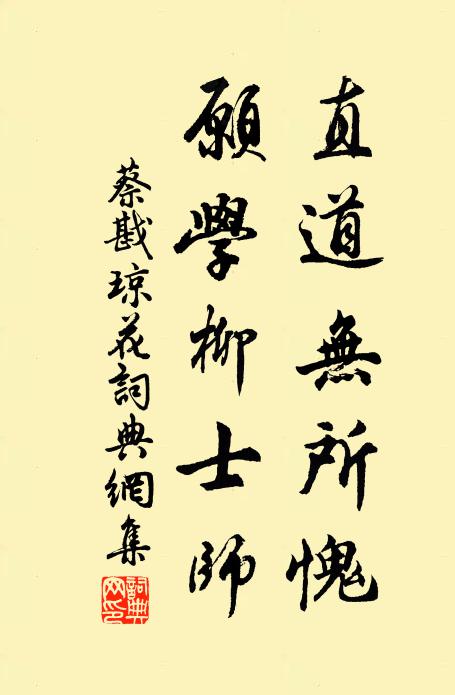 直道無所愧
願學柳士師
蔡戡琼花詞典網集
詞典網印